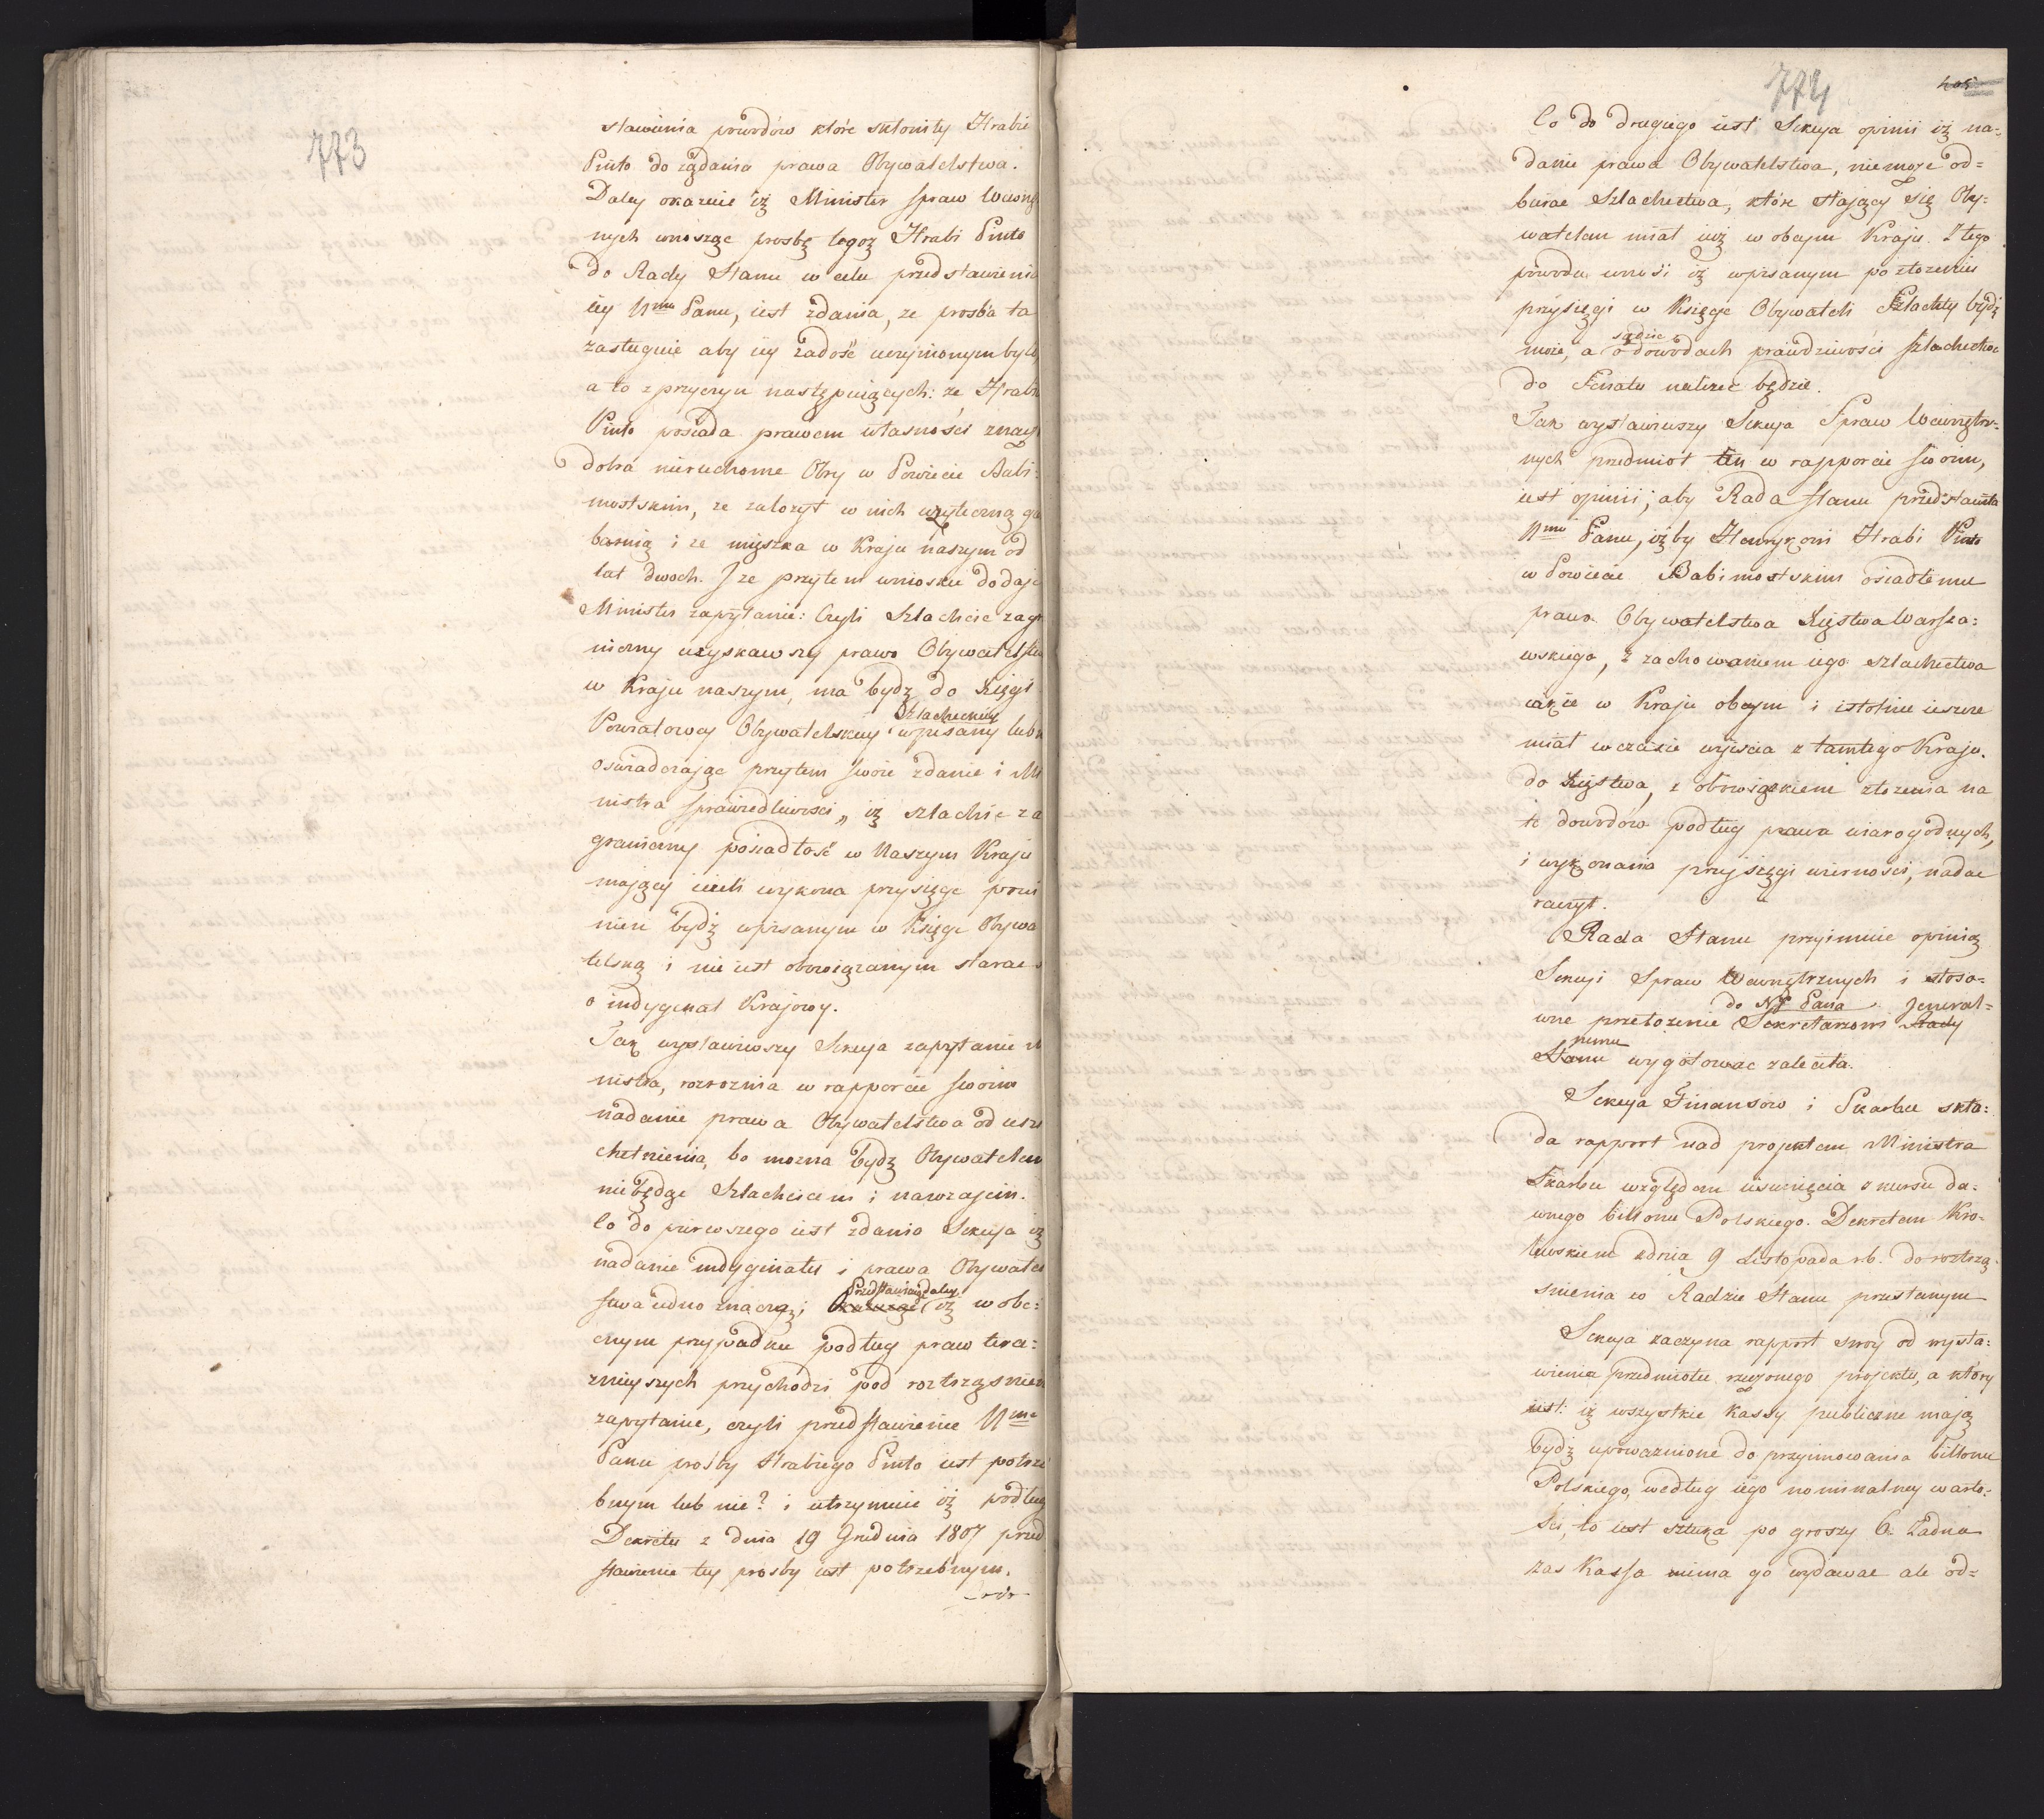 773
stawienia powodów które skłoniły Hrabie
Pinto do żądania prawa Obywatelstwa.
Daley okazuie iż Minister spraw Wewnę
nych wnosząc prosbę tegoż Hrabi Pinto
do Rady Stanu w celu przedstawienia
iey Nmu Panu, iest zdania, ze prosba ta
zasługuie aby iey zadość uczynionym było,
a to z przyczyn następuiących: ze Hrabia
Pinto posiada prawem własności znacz
dobra nieruchome Obry w Powiecie Babi-
mostskim, ze założył w nich użyteczną ga
barnią i ze mięszka w Kraju naszym od
lat dwoch. J ze przytem wniosku dodaje
Minister zapytanie: Czyli Szlachcic zagr
niczny uzyskawszy prawo Obywatelstwa
w Kraju naszym, ma bydź do Xięgi
Szlacheckiey
Powiatowey Obywatelskiey wpisany lub n
oswiadczając przytem swoie zdanie i Mi
nistra sprawiedliwości „ iż szlachcic za
graniczny posiadłość w Naszym Kraju
mający ieżeli wykona przysięgę powi
nien bydź wpisanym w Księgę Obywa
telską i nie iest obowiązanym starac s
o indygenat Krajowy.
Tak wystawiwszy Sekcya zapytanie M
nistra, rozroznia w rapporcie swoim
nadanie prawa Obywatelstwa od uszl
chetnienia, bo mozna bydź Obywatelem
niebędąc Szlachcicem i nawzajem.
Co do pierwszego iest zdania Sekcya iż
nadanie indyginatu i prawa Obywatel
Przedstawiaiąc daley
stwa iedno znaczą; iż w obe-
cnym przypadku podług praw tera-
znieyszych przychodzi pod roztrząsnien
zapytanie, czyli przedstawienie Nmu
Panu prośby Hrabiego Pinto iest potrze
bnym lub nie? i utrzymuie iż podług
Dekretu z dnia 19 Grudnia 1807 przed
stawienie tey prosby iest potrzebnym.
774
Co do drugiego iest Sekcya opinii iż na-
danie prawa Obywatelstwa, niemoże od-
bierac Szlachectwa, które stający się Oby-
watelem miał iuż w obcym Kraju. Z tego
powodu wnosi iż wpisanym po złożeniu
przysięgi w Księgę Obywateli Szlachty bydź
sądzic
może, a o dowodach prawdziwości szlachectwa
do Senatu należeć będzie.
Tak wystawiwszy Sekcya Spraw Wewnętrz-
nych przedmiot ten w rapporcie swoim,
iest opinii; aby Rada Stanu przedstawiła
Nmu Panu, iżby Henrykowi Hrabi Pinto
w Powiecie Babimostskim osiadłemu
prawo Obywatelstwa Xięstwa Warsza-
wskiego, z zachowaniem iego szlachectwa
iakie w Kraju obcym i istotnie ieszcze
miał w czasie wyiscia z tamtego Kraju.
do Xięstwa, z obowiązkiem złożenia na
to dowodow podług prawa wiarogodnych,
i wykonania przysięgi wierności, nadac
raczył.
Rada Stanu przyimuie opinią
Sekcyi Spraw Wewnętrznych i stoso-
do NJ Pana Jeneral-
wne przełożenie Sekretarzowi Rady
nemu
Stanu wygotowac zaleciła.
Sekcya Finansów i Skarbu skła-
da rapport nad projektem Ministra
Skarbu względem usunięcia z kursu da-
wnego billonu Polskiego. Dekretem Kró-
lewskiem z dnia 9 Listopada r.b. do roztrzą-
snienia w Radzie Stanu przesłanym
Sekcya zaczyna rapport swoy od wysta-
wienia przedmiotu rzeczonego projektu, a który
iest: iż wszystkie Kassy publiczne mają
bydź upoważnione do przyimowania billonu
Polskiego, według iego nominalney warto-
ści, to iest sztuka po groszy 6. Żadna
zas Kassa niema go wydawac ale od-